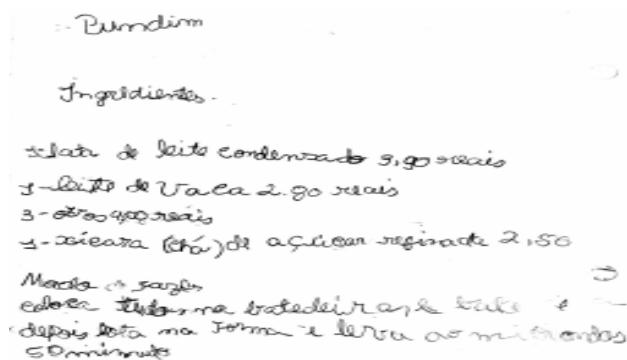 Pumdim
Ingridientes.
1-lata de leite condensado 3,90 reais
1-leite de Vaca 2.80 reais
3-ovos 4,00 reais
1-xícara (chá) de açúcar refinado 2,50
Modo fazer
coloca tudo na batedeira, e bate e
depois bota na forma e leva ao microondas
50 minuto